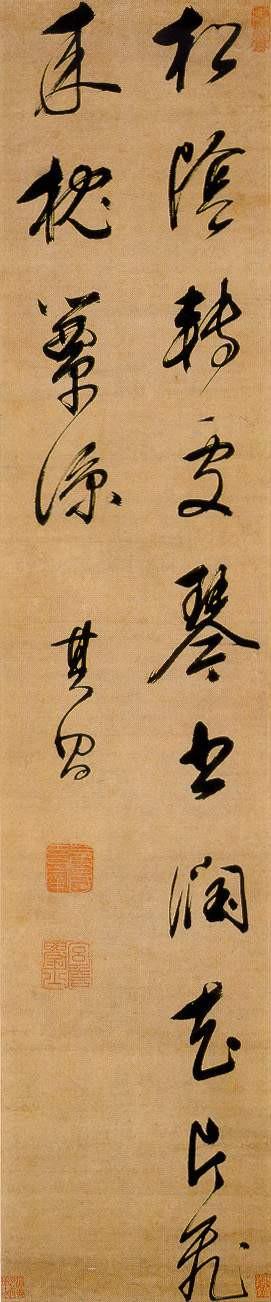 松陰轉處琴書潤花片飛
來枕簟涼
其昌